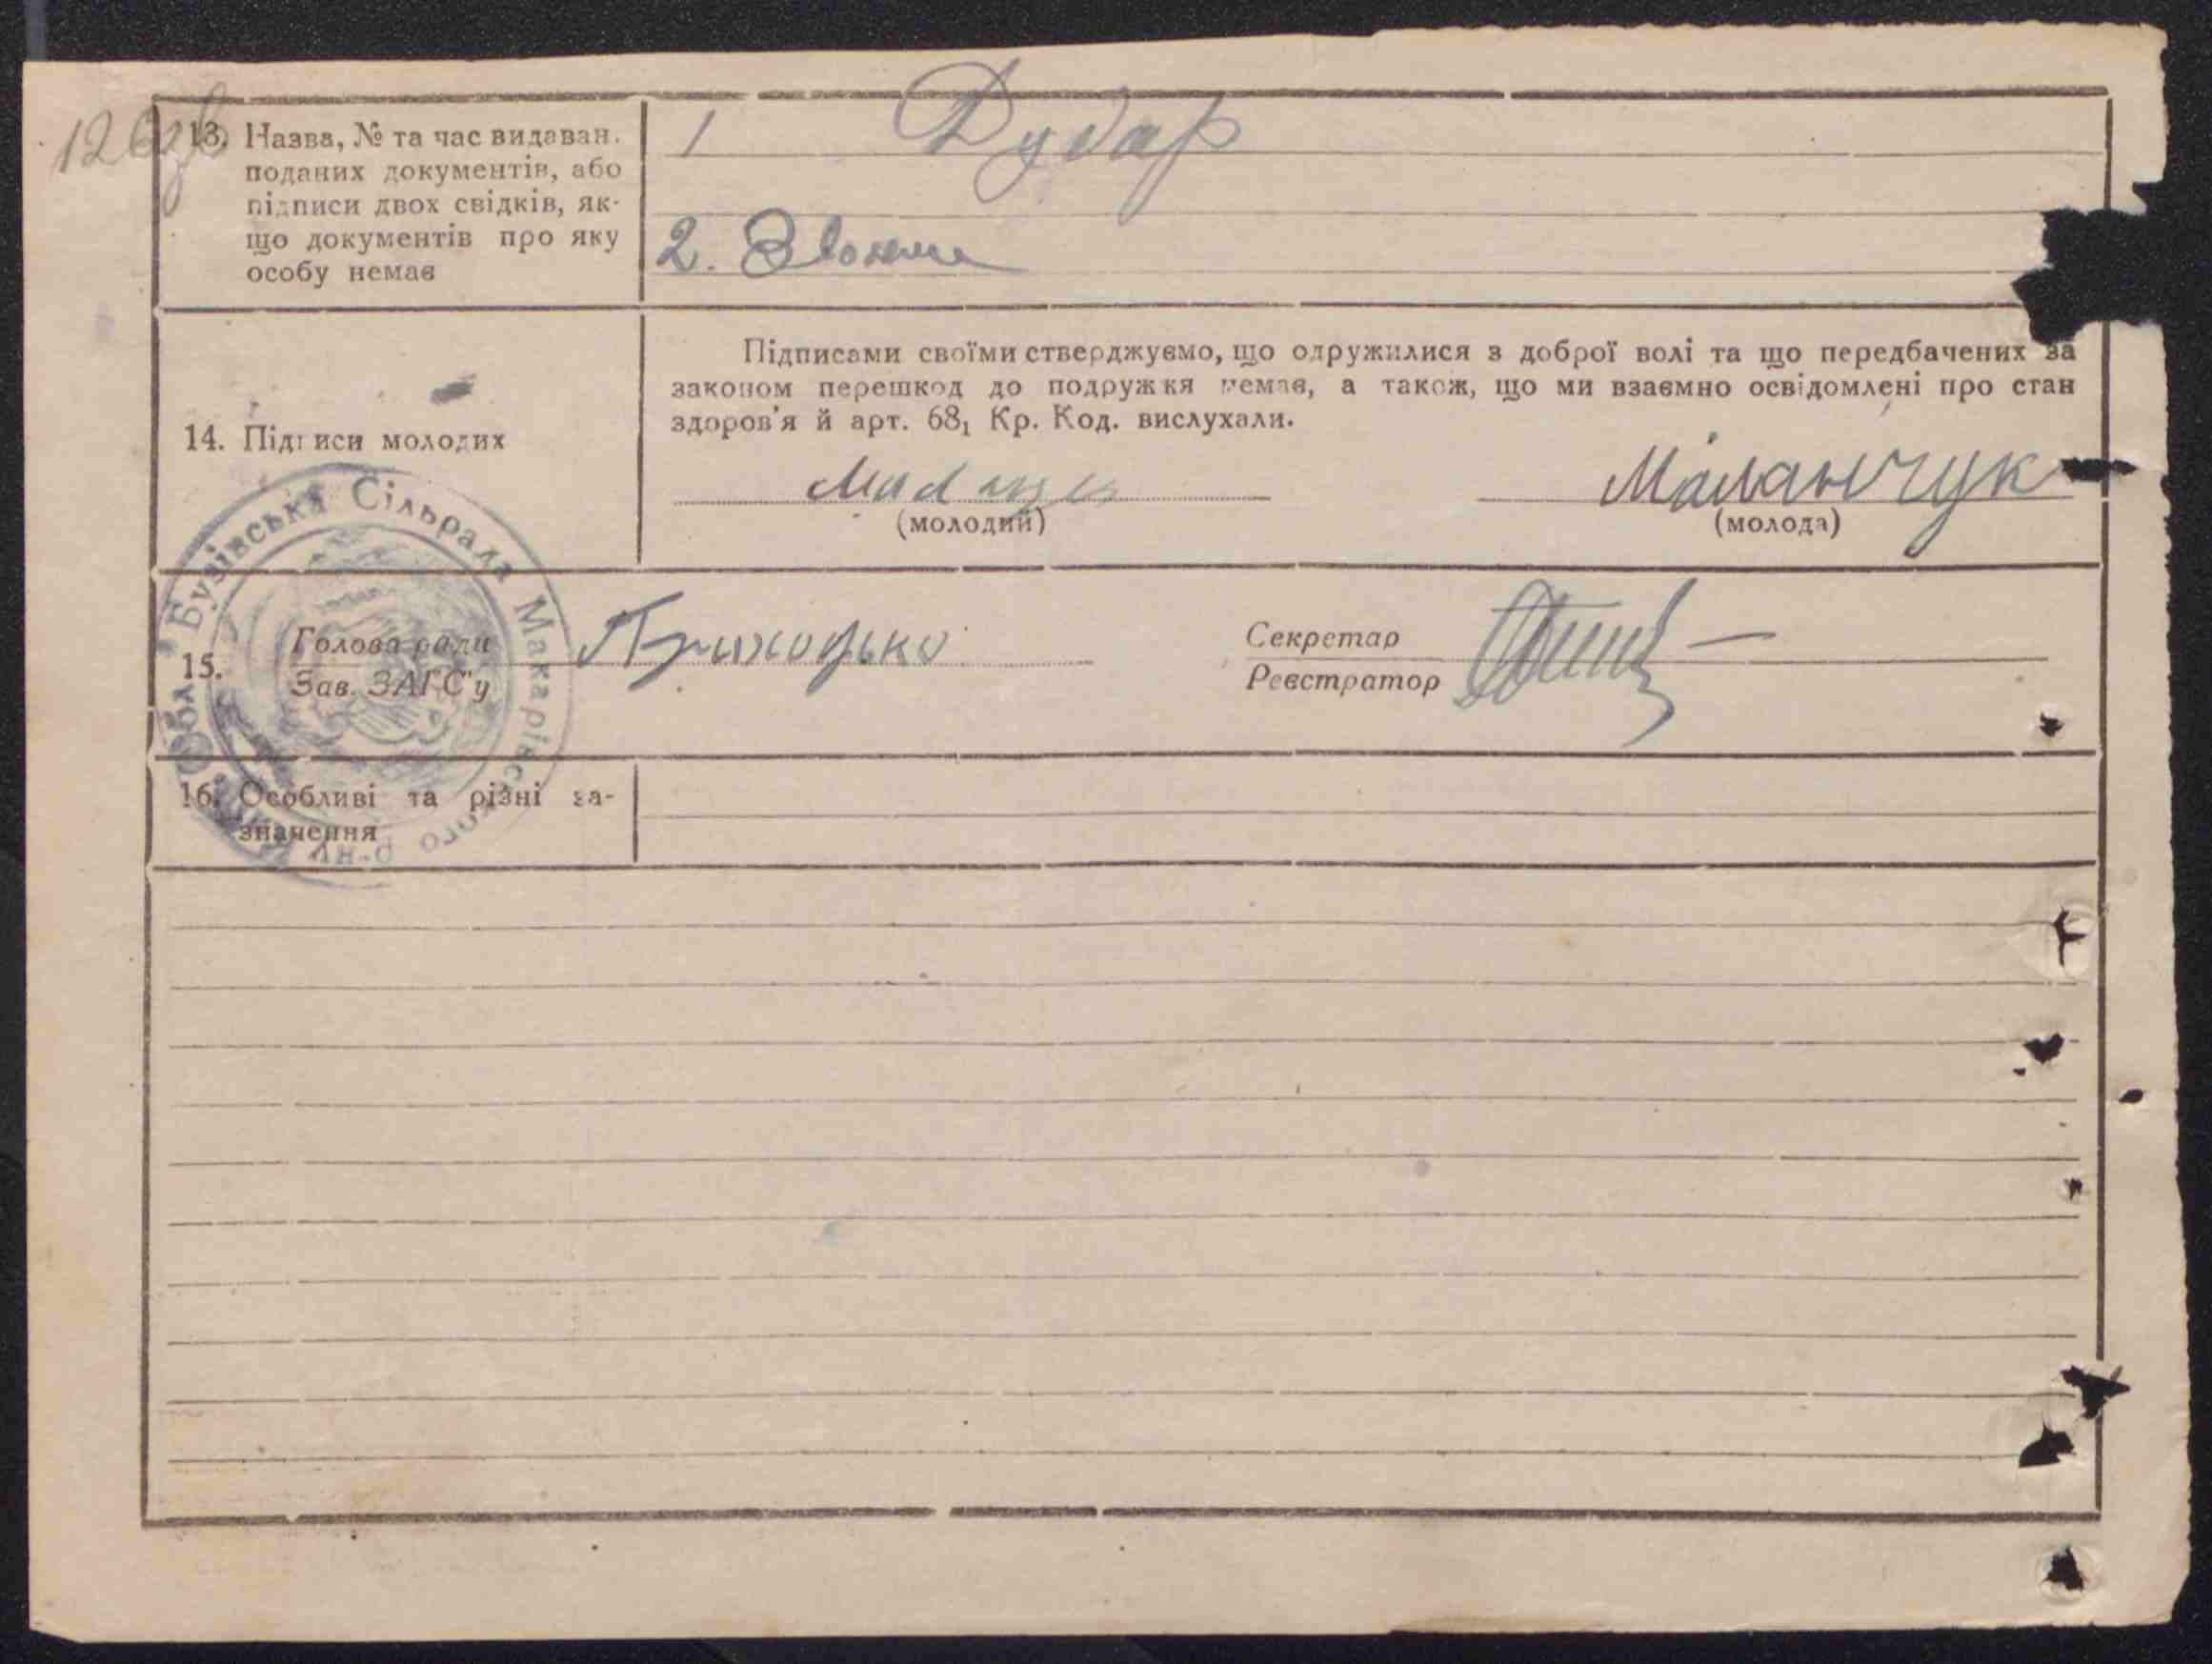 126зв
13. Назва, № та час видаван.
поданих документів, або
підписи двох свідків, як-
що документів про яку
особу немає
1 Дудар
2.
14. Підписи молодих
Підписами своїми стверджуємо, що одружилися з доброї волі та що передбачених за
законом перешкод до подружжя немає, а також, що ми взаємно освідомлені про стан
здоров'я й арт. 68₁ Кр. Код. вислухали.
(молодий)
Маланчук
(молода)
Бузівська Сільрада Макарівського р-ну
15.
Голова ради
Зав. ЗАГС'у
Приходько
Секретар
Реєстратор
16. Особливі та різні за-
значення